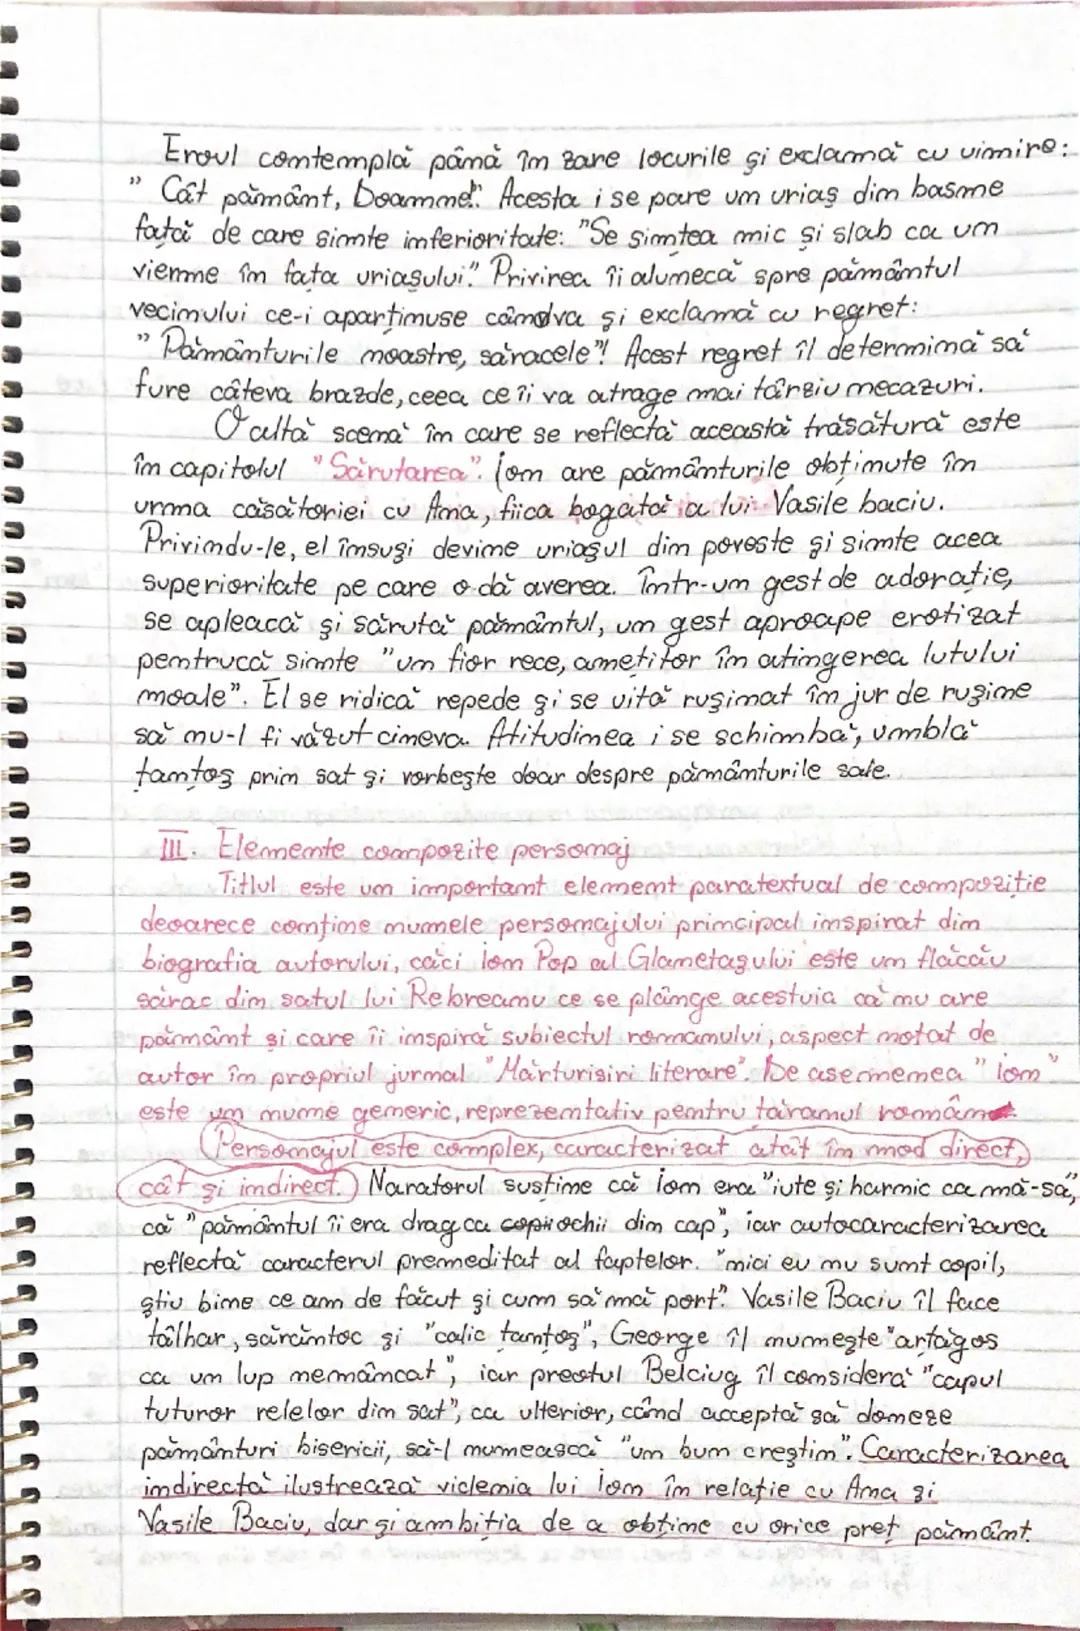 Eroul contemplă până în zare locurile și exclamă cu uimire:
" Cât pământ, Doamne!". Acesta i se pare un uriaș din basme
față de care simte inferioritate: "Se simțea mic și slab ca un
vierme în fața uriașului". Privirea îi alunecă spre pământul
vecinului ce-i aparținuse cândva și exclamă cu regret:
" Pământurile noastre, săracele"! Acest regret îl determină să
fure câteva brazde, ceea ce îi va atrage mai târziu necazuri.
O altă scenă în care se reflectă această trăsătură este
în capitolul "Sărutarea". Ion are pământurile obținute în
urma căsătoriei cu Ana, fiica bogată a lui Vasile baciu.
Privindu-le, el însuși devine uriașul din poveste și simte acea
superioritate pe care o dă averea. Într-un gest de adorație,
se apleacă și sărută pământul, un gest aproape erotizat
pentrucă simte "un fior rece, amețitor în atingerea lutului
moale". El se ridică repede și se uită rușinat în jur de rușine
să nu-l fi văzut cineva. Atitudinea i se schimbă, umblă
țanțoș prin sat și vorbește doar despre pământurile sale.
III. Elemente compozite personaj
Titlul este un important element paratextual de compoziție
deoarece conține numele personajului principal inspirat din
biografia autorului, căci Ion Pop al Glanetașului este un flăcău
sărac din satul lui Rebreanu ce se plânge acestuia că nu are
pământ și care îi inspiră subiectul romanului, aspect notat de
autor în propriul jurnal "Mărturisiri literare". De asemenea "ion"
este un nume generic, reprezentativ pentru țăranul român
Personajul este complex, caracterizat atât în mod direct,
cât și indirect. Naratorul susține că Ion era "iute și harnic ca mă-sa",
că "pământul îi era drag ca ochii din cap", iar autocaracterizarea
reflectă caracterul premeditat al faptelor. "nici eu nu sunt copil,
știu bine ce am de făcut și cum să mă port". Vasile Baciu îl face
tâlhar, sărăntoc și "calic țanțoș", George îl numește "arțăgos
ca un lup nemâncat", iar preotul Belciug îl consideră "capul
tuturor relelor din sat", ca ulterior, când acceptă să doneze
pământuri bisericii, să-l numească "un bun creștin". Caracterizarea
indirectă ilustrează viclenia lui Ion în relație cu Ana și
Vasile Baciu, dar și ambiția de a obține cu orice preț pământ.